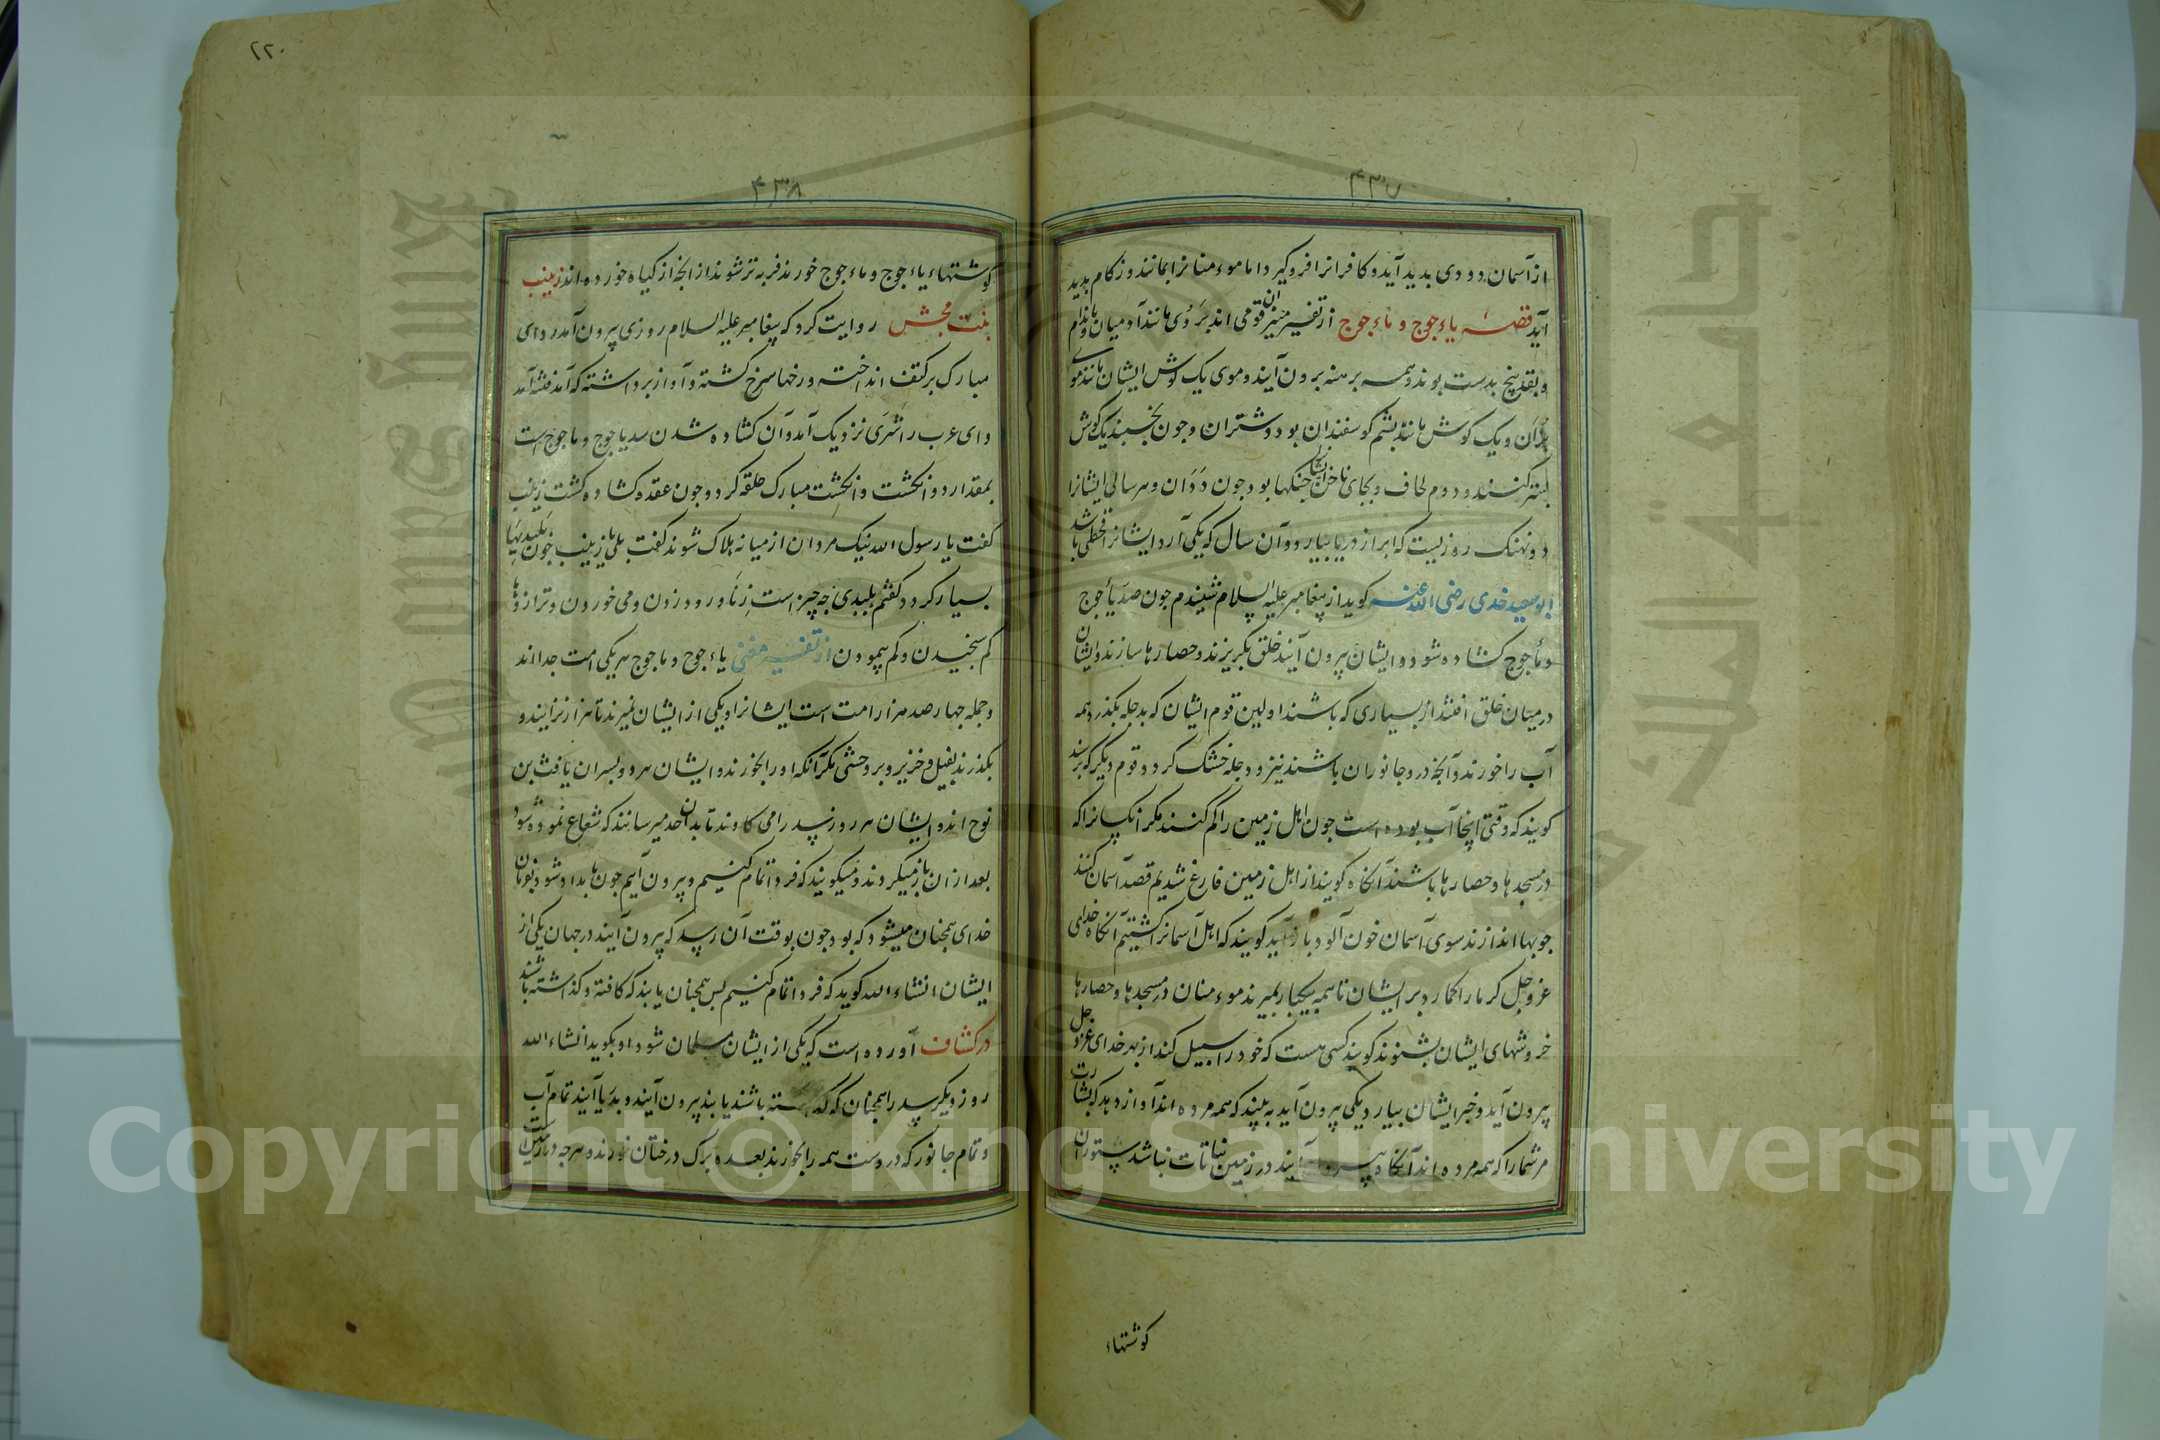 ۴۳۷
از آسمان دودی بدید آید و کافرانرا فروگیرد اما موءمنانرا بمانند زکام بدید
آید قصهٔ یاءجوج و ماءجوج از تفسیر منیر ان قومی اند بر روی مانند آدمیان باندام
و بقد پنج بدست بوند و همه برهنه برون آیند و موی یک کوش ایشان مانند موی
و یک کوش مانند پشم کوسفندان بود و شتران و جون بخسبند یک کوش
بستر کنند و دوم لحاف و بجای ناخن ایشان جنکها بود جون ددان و هر سالی ایشانرا
دو نهنک روزیست که ابر از دریا بیارد و آن سال که یکی آرد ایشانرا قحطی باشد
ابو سعید خدری رضی الله عنه کوید از پیغامبر علیه السلام شنیدم جون سد یأجوج
و مأجوج کشاده شود و ایشان بیرون آیند خلق بکریزند و حصارها سازند و ایشان
در میان خلق افتند از بسیاری که باشند اولین قوم ایشان که بدجله بکذرد همه
آب را خورند و آنجه درو جانوران باشند نیز و دجله خشک کردد قوم دیکر کو برسند
کویند که وقتی اینجا آب بوده است جون اهل زمین را کم کنند مکر آنکسانرا که
در مسجدها و حصارها باشند آنکاه کویند از اهل زمین فارغ شدیم قصد آسمان کنند
جوبها اندازند سوی آسمان خون آلود باز آید کویند که اهل آسمانرا کشتیم آنکاه خدای
عز و جل کرمارا کمارد بر ایشان تا همه بیکبار بمیرند موءمنان در مسجدها و حصارها
خروشهای ایشان بشنوند کویند کسی هست که خود را سبیل کند از بهر خدای عز و جل
بیرون آید و خبر ایشان بیارد یکی بیرون آید به بیند که همه مرده اند آواز دهد که بشارت
مر شما را که همه مرده اند آنکاه بیرون آیند در زمین نباتات نباشد ستوران
کوشتهاء
۲۲۰
۴۳۸
کوشتهاء یاءجوج و ماءجوج خورند فربه تر شوند از انجه از کیاه خورده اند زینب
بنت جحش روایت کرد که پیغامبر علیه السلام روزی بیرون آمد ردای
مبارک بر کتف انداخته و رخها سرخ کشته و آواز برداشته که آمد فتنه آمد
وای عرب را شری نزدیک آمد و آن کشاده شدن سد یاجوج و ماجوج است
بمقدار دو انکشت و انکشت مبارک حلقه کرد و جون عقده کشاده کشت زینب
کفت یا رسول الله نیک مردان از میانه هلاک شوند کفت بلی یا زینب جون بلیدیها
بسیار کردد کفتم بلیدی جه جیز است زنا و رود زدن و می خوردن و ترازوها
کم سنجیدن و کم پیمودن از تفسیر مغنی یاءجوج و ماجوج هر یکی امت جدااند
و جمله جهار صد هزار امت است ایشانرا و یکی از ایشان نمیرند تا هزار نزایند و
بکذرند بفیل و خنزیر و بر وحشی مکر آنکه او را بخورند و ایشان هر دو بسران یافث بن
نوح اند و ایشان هر روز سد را می کاوند تا بدان حد میرسانند که شعاع نموده شود
بعد از ان باز میکردند و میکویند که فردا تمام کنیم و بیرون آیم جون بامداد شود بفرمان
خدای همجنان میشود که بود جون بوقت آن رسد که بیرون آیند در جهان یکی از
ایشان انشاء الله کوید که فردا تمام کنیم بس همجنان یابند که کافته و کذاشته باشند
در کشاف آورده است که یکی از ایشان مسلمان شود و او بکوید انشاء الله
روز دیکر سد را همجنان که کذاشته باشند یابند بیرون آیند و بدریا آیند تمام آب
و تمام جانور که دروست همه را بخورند بعده برک درختان خورند و هر جه در زمین است
King Saud University
جامعة الملك سعود
Copyright © King Saud University